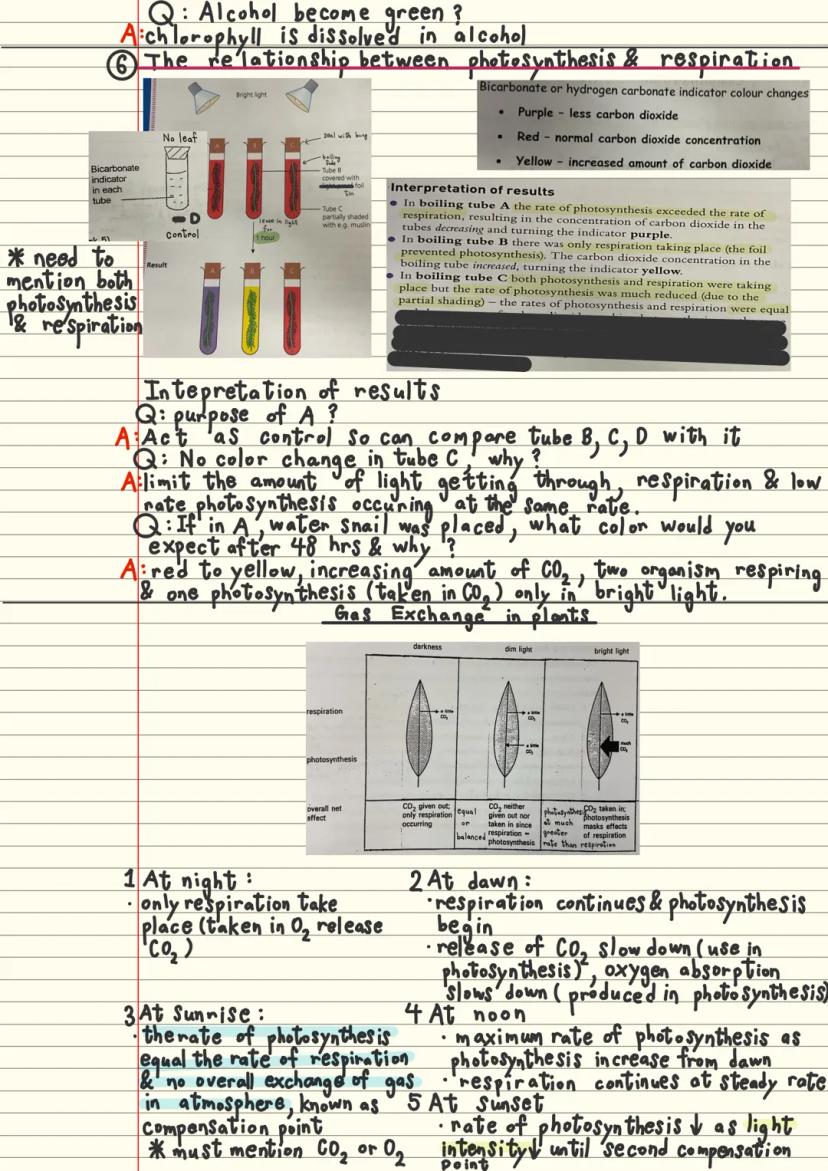 Q: Alcohol become green?
A: chlorophyll is dissolved in alcohol
6 The relationship between photosynthesis & respiration
Bright light
No leaf
Bicarbonate
indicator
in each
tube
D
control
A B C
seal with bung
boiling
tube
Tube B
covered with
foil
tin
Tube C
partially shaded
with e.g. muslin
leave in light
for
1 hour
Result
A B C
Bicarbonate or hydrogen carbonate indicator colour changes
• Purple – less carbon dioxide
• Red – normal carbon dioxide concentration
• Yellow – increased amount of carbon dioxide
Interpretation of results
• In boiling tube A the rate of photosynthesis exceeded the rate of
respiration, resulting in the concentration of carbon dioxide in the
tubes decreasing and turning the indicator purple.
• In boiling tube B there was only respiration taking place (the foil
prevented photosynthesis). The carbon dioxide concentration in the
boiling tube increased, turning the indicator yellow.
• In boiling tube C both photosynthesis and respiration were taking
place but the rate of photosynthesis was much reduced (due to the
partial shading) – the rates of photosynthesis and respiration were equal
* need to
mention both
photosynthesis
& respiration
Intepretation of results
Q: purpose of A ?
A: Act as control so can compare tube B, C, D with it
Q: No color change in tube C, why ?
A: limit the amount of light getting through, respiration & low
rate photosynthesis occuring at the same rate.
Q: If in A, water snail was placed, what color would you
expect after 48 hrs & why ?
A: red to yellow, increasing amount of CO₂, two organism respiring
& one photosynthesis (taken in CO₂) only in bright light.
Gas Exchange in plants
darkness dim light bright light
respiration
a little CO₂ a little CO₂ a little CO₂
photosynthesis
a little CO₂ much CO₂
overall net
effect
CO₂ given out;
only respiration
occurring
equal
or
balanced
CO₂ neither
given out nor
taken in since
respiration =
photosynthesis
photosynthesis
at much
greater
rate than respiration
CO₂ taken in;
photosynthesis
masks effects
of respiration
1 At night :
· only respiration take
place (taken in O₂ release
CO₂)
2 At dawn :
· respiration continues & photosynthesis
begin
· release of CO₂ slow down (use in
photosynthesis), oxygen absorption
slows down (produced in photosynthesis)
3 At Sunrise :
· the rate of photosynthesis
equal the rate of respiration
& no overall exchange of gas
in atmosphere, known as
compensation point
* must mention CO₂ or O₂
4 At noon
· maximum rate of photosynthesis as
photosynthesis increase from dawn
· respiration continues at steady rate
5 At sunset
· rate of photosynthesis ↓ as light
intensity↓ until second compensation
point